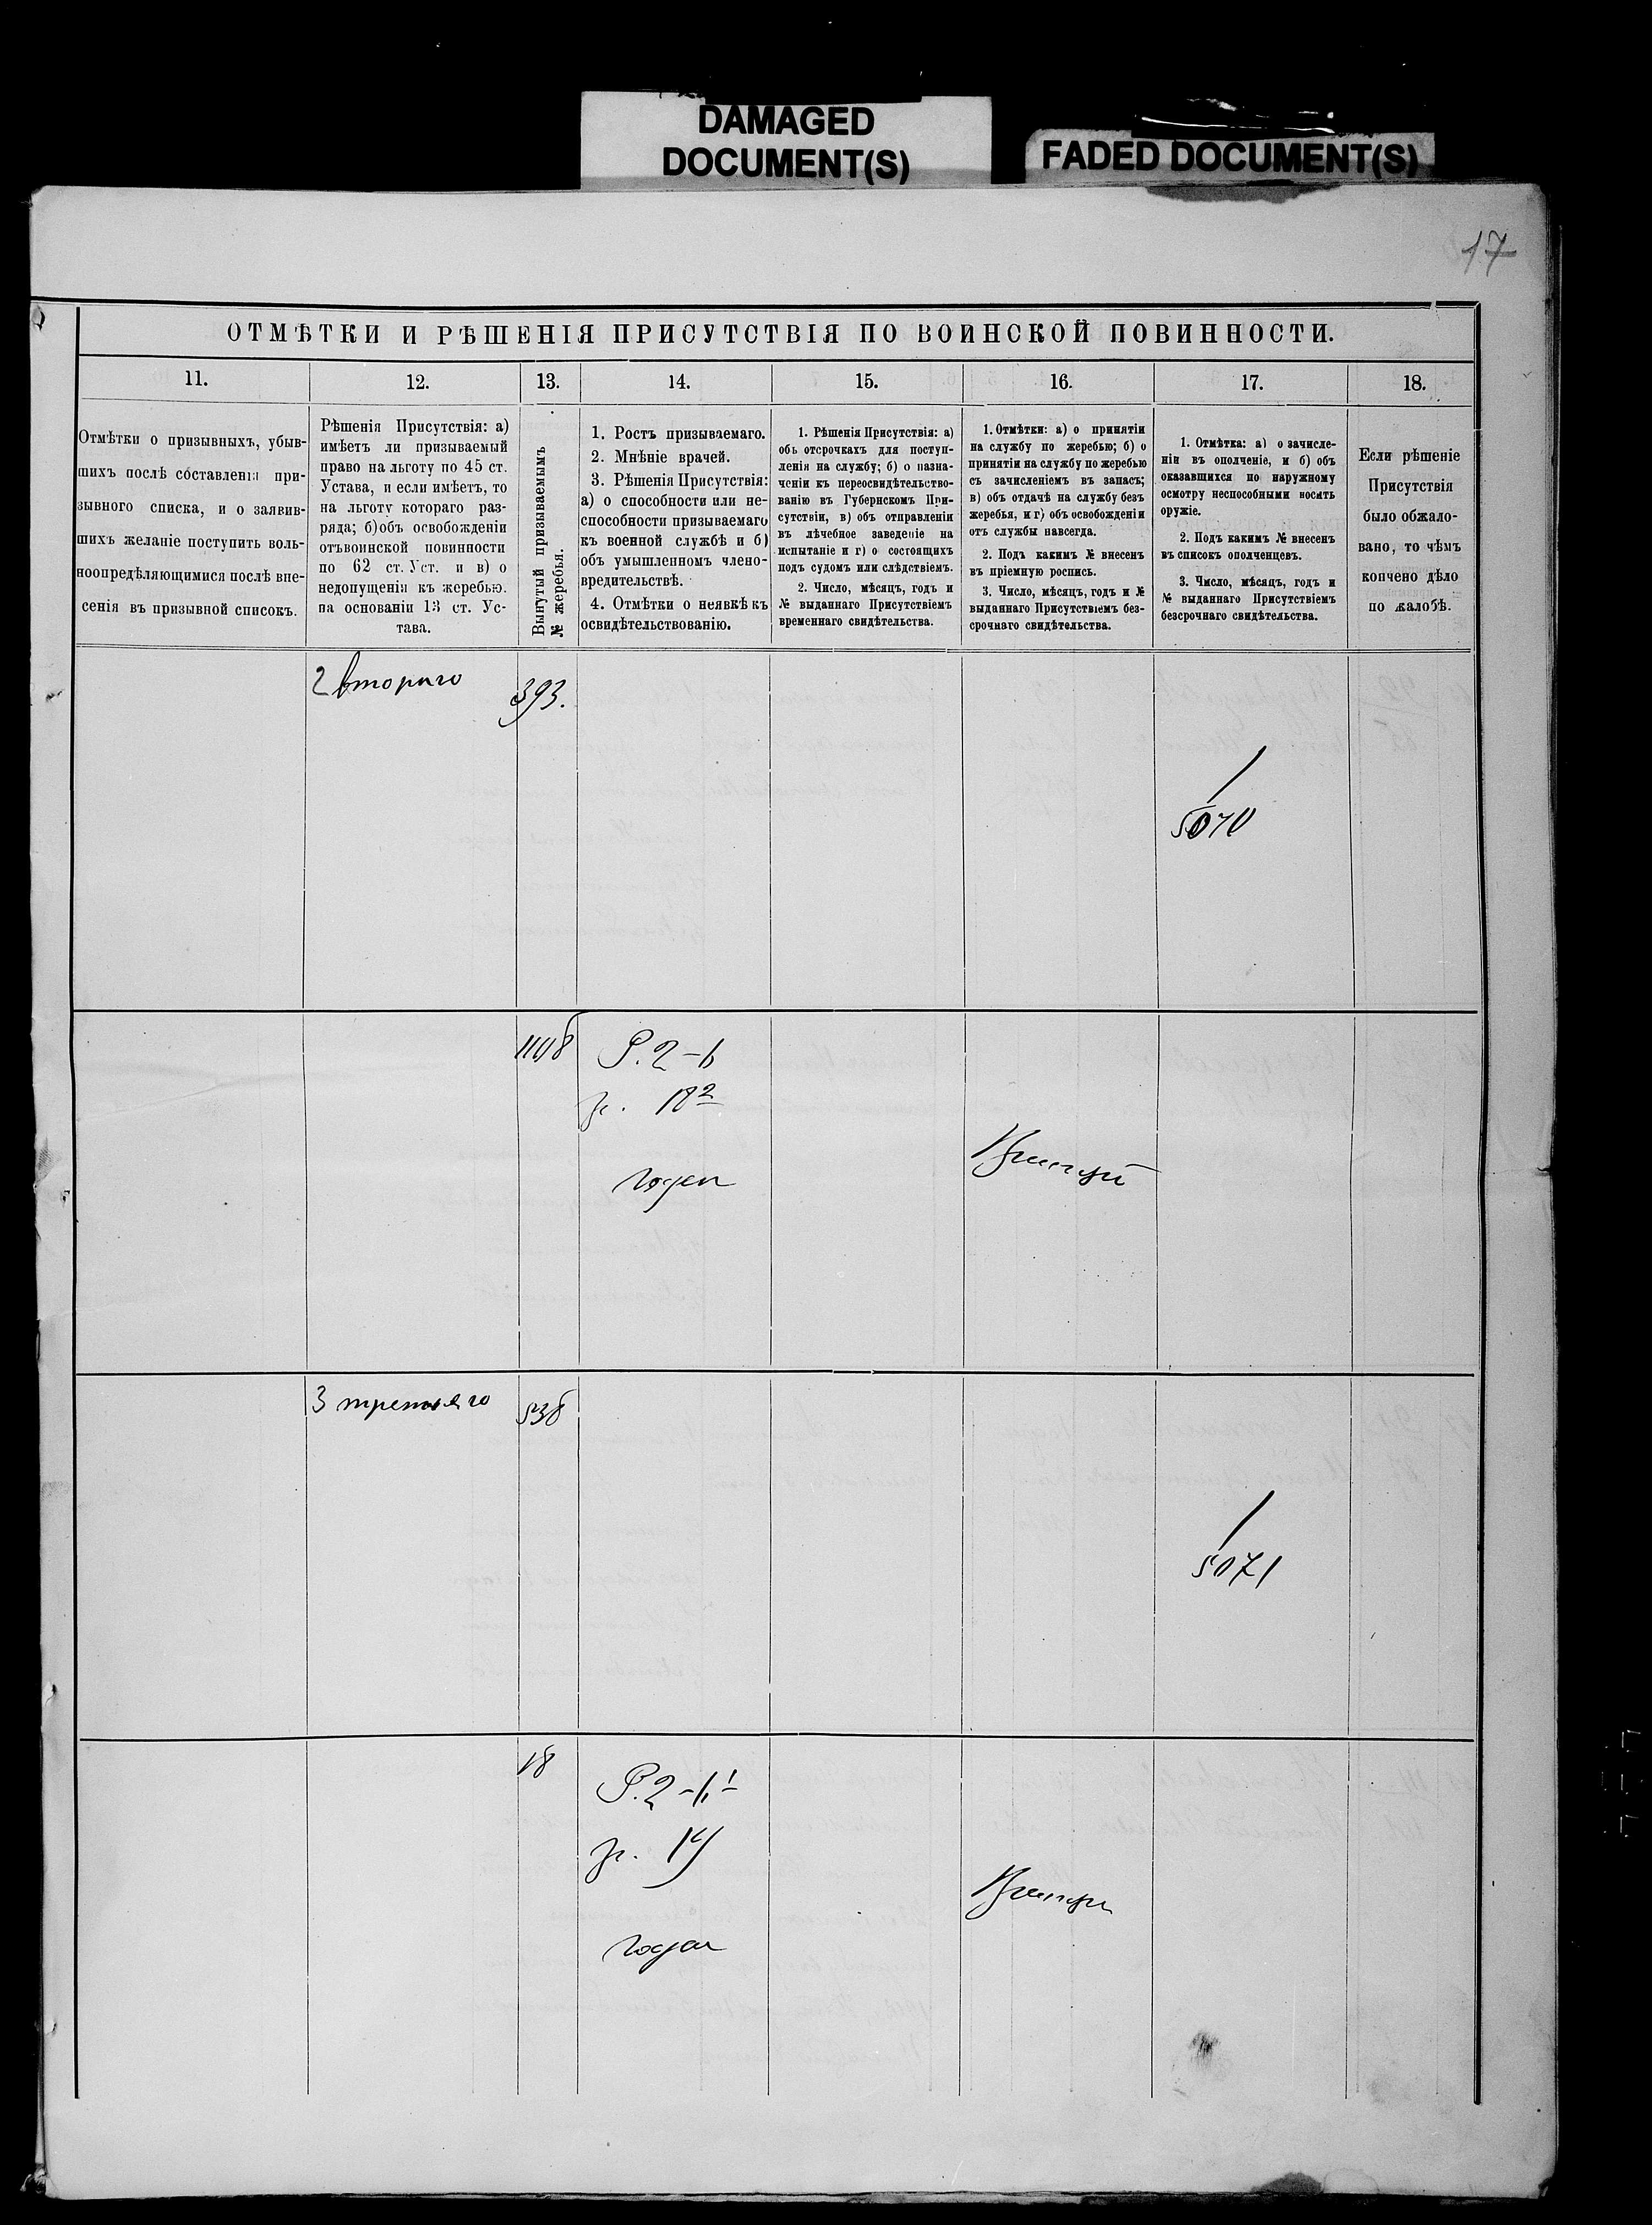 DAMAGED
DOCUMENT(S)
FADED DOCUMENT(S)
17
ОТМѢТКИ И РѢШЕНІЯ ПРИСУТСТВІЯ ПО ВОИНСКОЙ ПОВИННОСТИ.
11.
12.
13.
14.
15.
16.
17.
18.
Отмѣтки о призывныхъ, убыв-
шихъ послѣ составленія при-
зывного списка, и о заявив-
шихъ желаніе поступить воль-
ноопредѣляющимися послѣ вне-
сенія въ призывной списокъ.
Рѣшенія Присутствія: а)
имѣетъ ли призываемый
право на льготу по 45 ст.
Устава, и если имѣетъ, то
на льготу котораго раз-
ряда; б) объ освобожденіи
отъ воинской повинности
по 62 ст. Уст. и в) о
недопущеніи къ жеребью.
на основаніи 13 ст. Ус-
тава.
Вынутый призываемымъ
№ жеребья.
1. Ростъ призываемаго.
2. Мнѣніе врачей.
3. Рѣшенія Присутствія:
а) о способности или не-
способности призываемаго
къ военной службѣ и б)
объ умышленномъ члено-
вредительствѣ.
4. Отмѣтки о неявкѣ къ
освидѣтельствованію.
1. Рѣшенія Присутствія: а)
объ отсрочкахъ для поступ-
ленія на службу; б) о назна-
ченіи къ переосвидѣтельство-
ванію въ Губернскомъ При-
сутствіи, в) объ отправленіи
въ лѣчебное заведеніе на
испытаніе и г) о состоящихъ
подъ судомъ или слѣдствіемъ.
2. Число, мѣсяцъ, годъ и
№ выданнаго Присутствіемъ
временнаго свидѣтельства.
1. Отмѣтки: а) о принятіи
на службу по жеребью; б) о
принятіи на службу по жеребью
съ зачисленіемъ въ запасъ;
в) объ отдачѣ на службу безъ
жеребья, и г) объ освобожденіи
отъ службы навсегда.
2. Подъ какимъ № внесенъ
въ пріемную роспись.
3. Число, мѣсяцъ, годъ и №
выданнаго Присутствіемъ без-
срочнаго свидѣтельства.
1. Отмѣтка: а) о зачисле-
ніи въ ополченіе, и б) объ
оказавшихся по наружному
осмотру неспособными носить
оружіе.
2. Подъ какимъ № внесенъ
въ списокъ ополченцевъ.
3. Число, мѣсяцъ, годъ и
№ выданнаго Присутствіемъ
безсрочнаго свидѣтельства.
Если рѣшеніе
Присутствія
было обжало-
вано, то чѣмъ
кончено дѣло
по жалобѣ.
2 втораго
393.
5070
1108
Р. 2-6
г. 18 2
годен
Принят
3 третьяго
538
5071
18
Р. 2-6
г. 19
годен
Принят